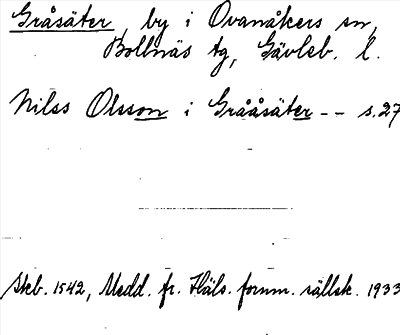 Gråsäter, by i Ovanåkers sn,
Bollnäs tg, Gävleb. l.
Nilss Olsson i Gråååsäter -- s.27
Skb. 1542, Medd. fr. Häls. fornm. sällsk. 1933